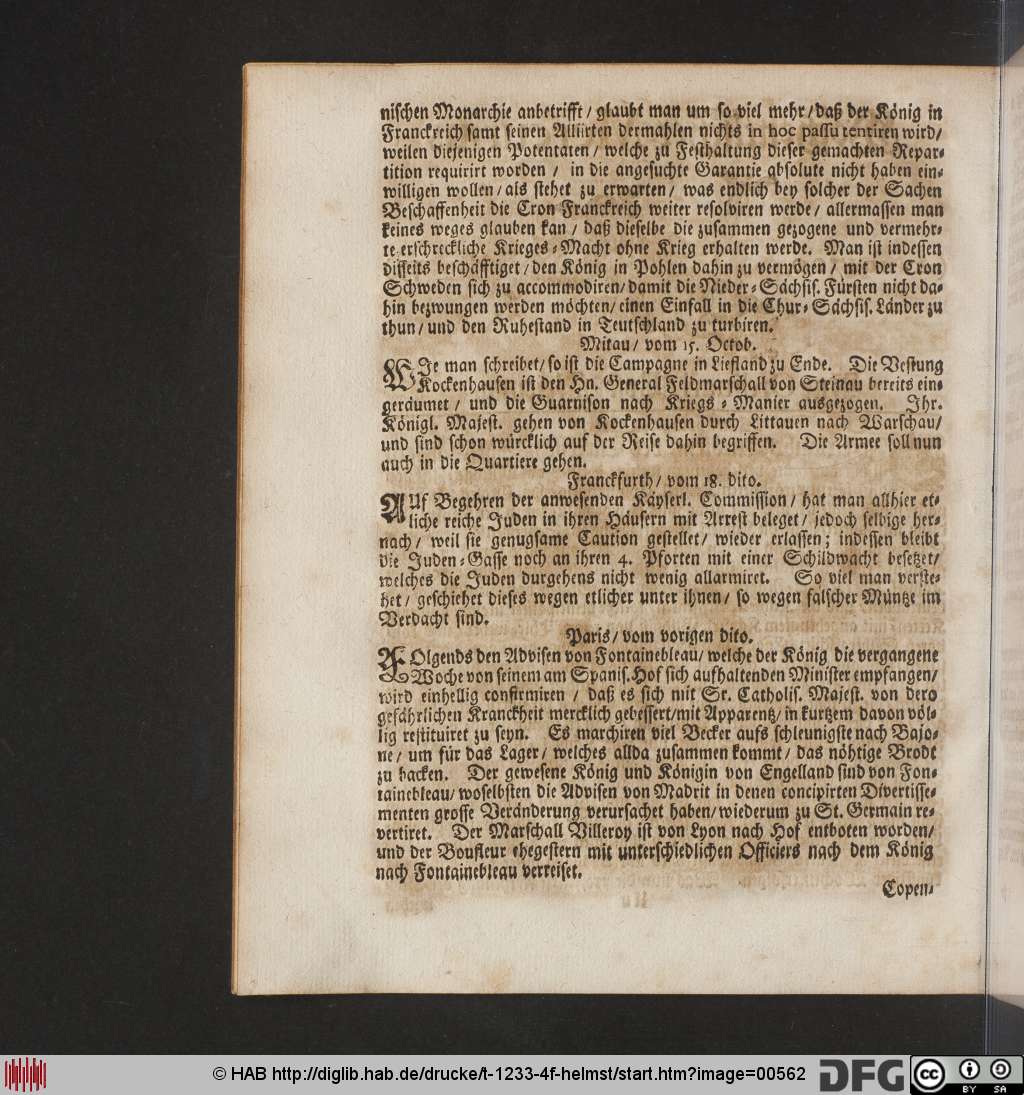 nischen Monarchie anbetrifft / glaubt man um so viel mehr / daß der König in
Franckreich samt seinen Alliirten dermahlen nichts in hoc passu tentiren wird /
weilen diejenigen Potentaten / welche zu Festhaltung dieser gemachten Repar-
tition requirirt worden / in die angesuchte Garantie absolute nicht haben ein-
willigen wollen / als stehet zu erwarten / was endlich bey solcher der Sachen
Beschaffenheit die Cron Franckreich weiter resolviren werde / allermassen man
keines weges glauben kan / daß dieselbe die zusammen gezogene und vermehr-
te erschreckliche Krieges-Macht ohne Krieg erhalten werde. Man ist indessen
disseits beschäfftiget / den König in Pohlen dahin zu vermögen / mit der Cron
Schweden sich zu accommodiren / damit die Nieder-Sächsis. Fürsten nicht da-
hin bezwungen werden möchten / einen Einfall in die Chur-Sächsis. Länder zu
thun / und den Ruhestand in Teutschland zu turbiren.
Mitau / vom 15. Octob.
WIe man schreibet / so ist die Campagne in Liefland zu Ende. Die Vestung
Kockenhausen ist den Hn. General Feldmarschall von Steinau bereits ein-
geräumet / und die Guarnison nach Kriegs-Manier ausgezogen. Ihr.
Königl. Majest. gehen von Kockenhausen durch Littauen nach Warschau /
und sind schon würcklich auf der Reise dahin begriffen. Die Armee soll nun
auch in die Quartiere gehen.
Franckfurth / vom 18. dito.
AUf Begehren der anwesenden Käyserl. Commission / hat man allhier et-
liche reiche Juden in ihren Häusern mit Arrest beleget / jedoch selbige her-
nach / weil sie genugsame Caution gestellet / wieder erlassen; indessen bleibt
die Juden-Gasse noch an ihren 4. Pforten mit einer Schildwacht besetzet /
welches die Juden durgehens nicht wenig allarmiret. So viel man verste-
het / geschiehet dieses wegen etlicher unter ihnen / so wegen falscher Müntze im
Verdacht sind.
Paris / vom vorigen dito.
FOlgends den Advisen von Fontainebleau / welche der König die vergangene
Woche von seinem am Spanis. Hof sich aufhaltenden Minister empfangen /
wird einhellig confirmiren / daß es sich mit Sr. Catholis. Majest. von dero
gefährlichen Kranckheit mercklich gebessert / mit Apparentz / in kurtzem davon völ-
lig restituiret zu seyn. Es marchiren viel Becker aufs schleunigste nach Bajo-
ne / um für das Lager / welches allda zusammen kommt / das nöhtige Brodt
zu backen. Der gewesene König und Königin von Engelland sind von Fon-
tainebleau / woselbsten die Advisen von Madrit in denen concipirten Divertisse-
menten grosse Veränderung verursachet haben / wiederum zu St. Germain re-
vertiret. Der Marschall Villeroy ist von Lyon nach Hof entboten worden /
und der Boufleur ehegestern mit unterschiedlichen Officiers nach dem König
nach Fontainebleau verreiset.
Copen-
© HAB http://diglib.hab.de/drucke/t-1233-4f-helmst/start.htm?image=00562
DFG
cc
BY SA